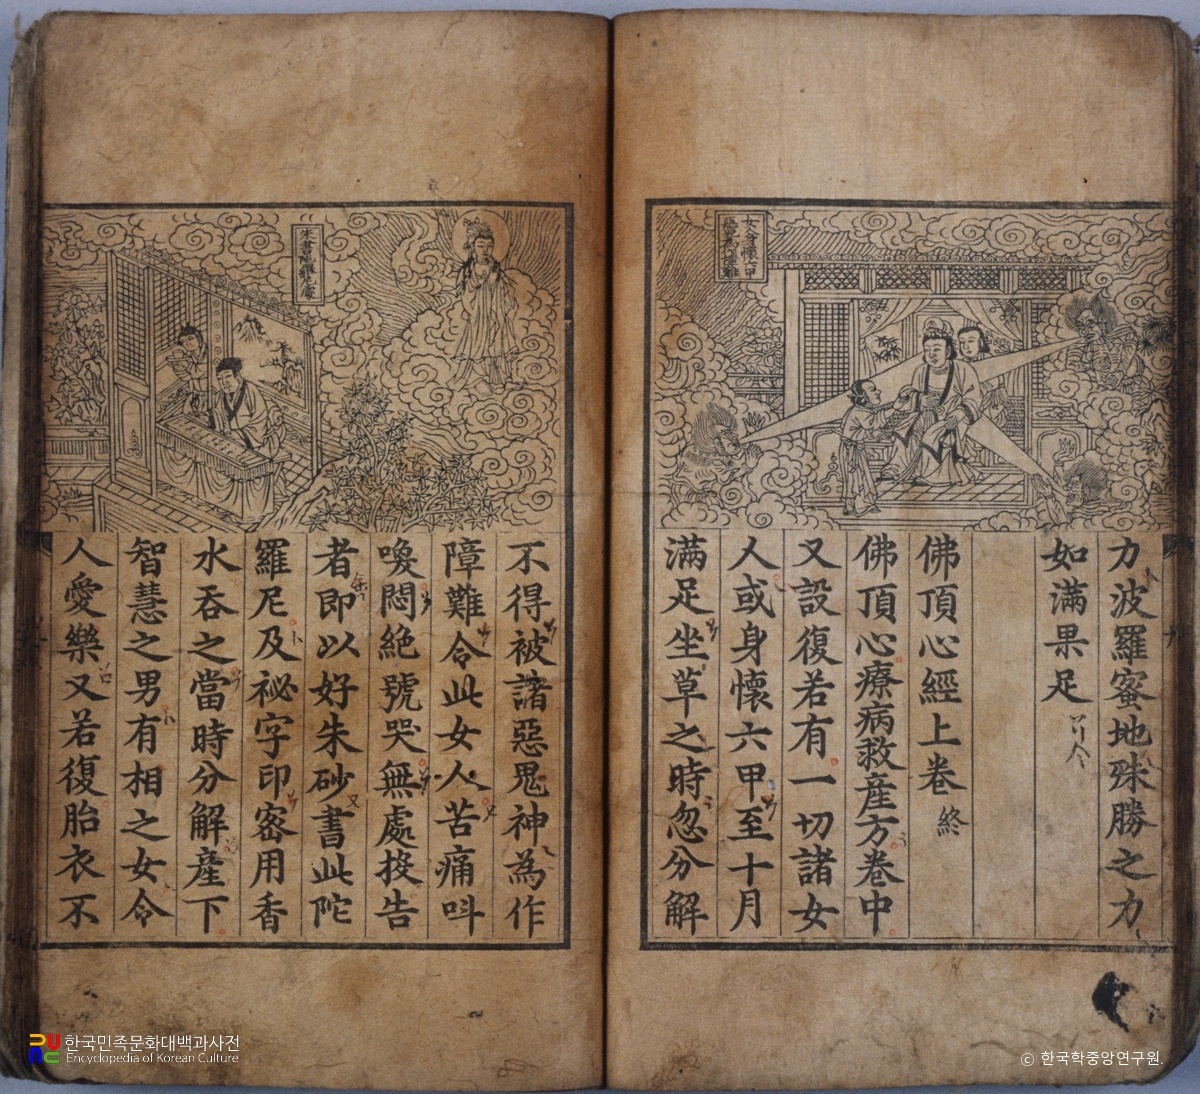 女人身懷六甲
惡鬼為障難
力波羅蜜地殊勝之力
如滿果足
佛頂心經上卷 終
佛頂心療病救産方卷中
又設復若有一切諸女
人或身懷六甲至十月
滿足坐草之時忽分解
朱書陀羅尼處
不得被諸惡鬼神為作
障難令此女人苦痛呌
喚悶絶號哭無處投告
者即以好朱砂書此陀
羅尼及祕字印密用香
水吞之當時分解産下
智慧之男有相之女令
人愛樂又若復胎衣不
한국민족문화대백과사전
Encyclopedia of Korean Culture
© 한국학중앙연구원.